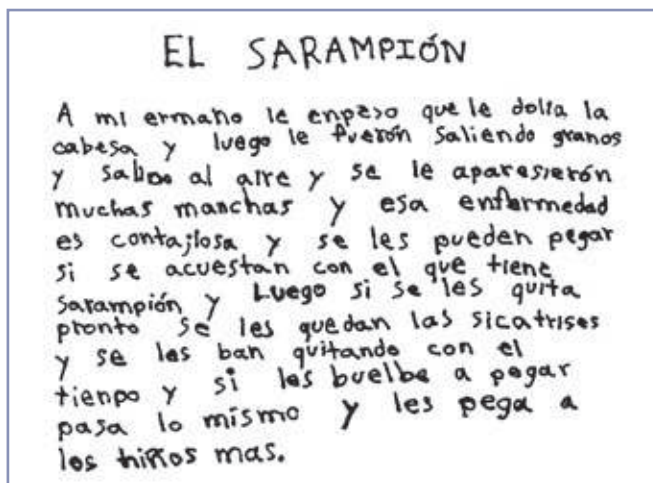 EL SARAMPIÓN
A mi ermano le enpeso que le dolia la
cabesa y luego le fuerón saliendo granos
y salio al aire y se le aparesierón
muchas manchas y esa enfermedad
es contajiosa y se les pueden pegar
si se acuestan con el que tiene
sarampión y Luego si se les quita
pronto se les quedan las sicatrises
y se les ban quitando con el
tienpo y si les buelbe a pegar
pasa lo mismo y les pega a
los niños mas.